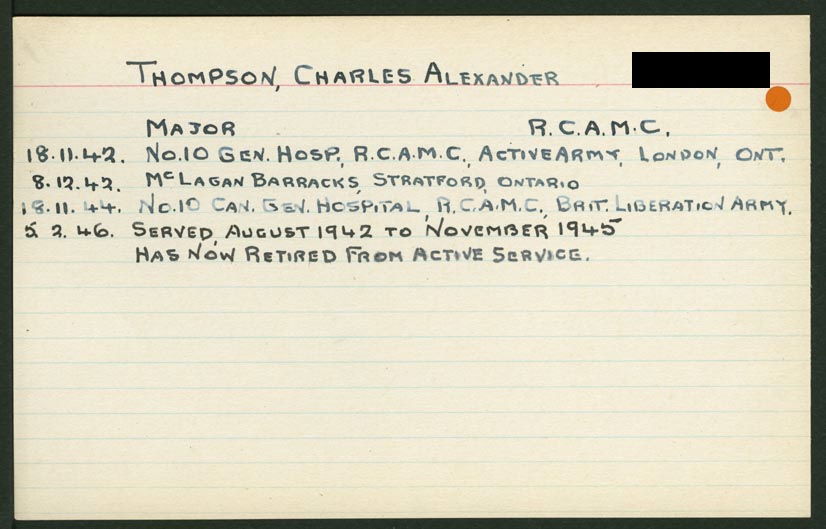 THOMPSON, CHARLES ALEXANDER
MAJOR R.C.A.M.C.
18.11.42. NO.10 GEN. HOSP., R.C.A.M.C., ACTIVE ARMY, LONDON, ONT.
8.12.42. McLAGAN BARRACKS, STRATFORD, ONTARIO
18.11.44. NO.10 CAN. GEN. HOSPITAL, R.C.A.M.C., BRIT. LIBERATION ARMY.
5.2.46. SERVED AUGUST 1942 TO NOVEMBER 1945
HAS NOW RETIRED FROM ACTIVE SERVICE.